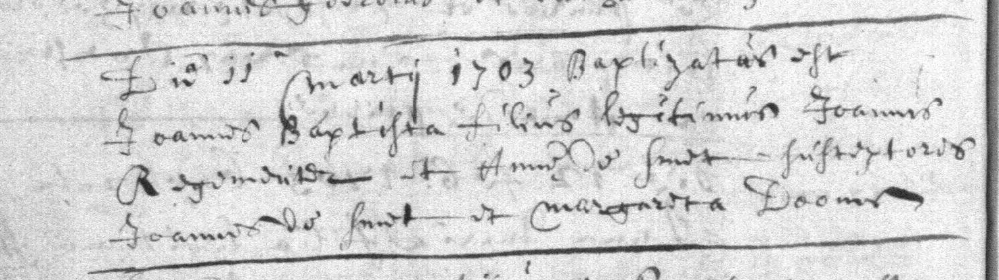 Joannes
Die 11ª martij 1703 Baptizatus est
Joannes Baptista filius legitimus Joannis
Regementer et Annæ De smet susceptores
Joannes De smet et margareta Dooms